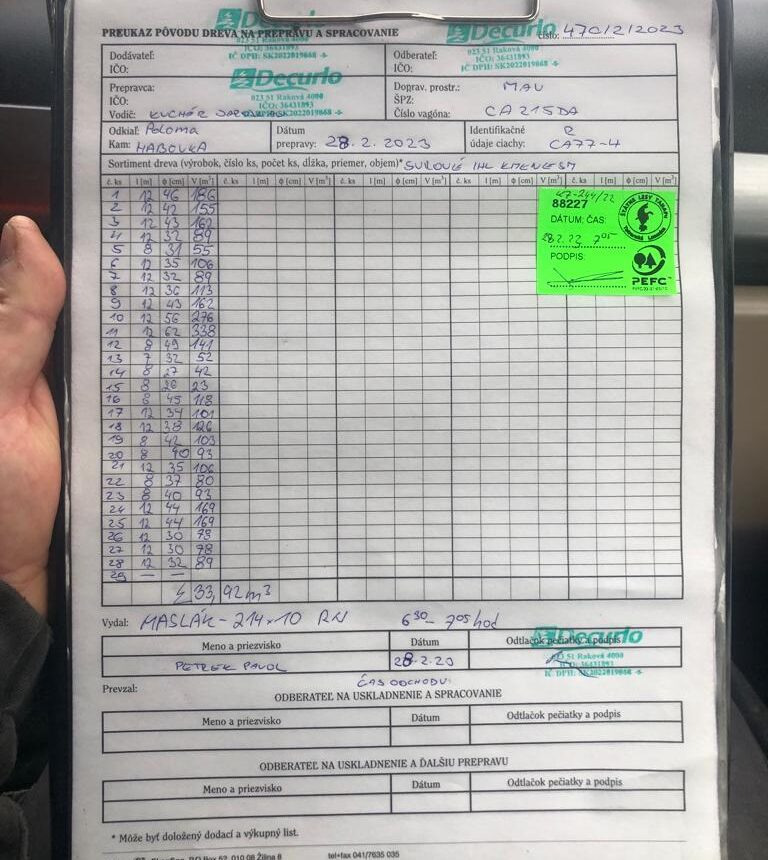 Decurlo
PREUKAZ PÔVODU DREVA NA PREPRAVU A SPRACOVANIE
číslo: 470/2/2023
023 51 Raková 4000
IČO: 36431893
IČ DPH: SK2022019868 -5-
Decurlo
023 51 Raková 4000
IČ DPH: SK2022019868 -5-
Dodávateľ:
IČO:
Odberateľ:
IČO:
Decurlo
023 51 Raková 4000
IČO: 36431893
SK2022019868 -5-
Prepravca:
IČO:
Vodič: KUCHÁR
Doprav. prostr.: MAN
ŠPZ:
Číslo vagóna: CA215DA
Odkiaľ: Poloma
Kam: HABOVKA
Dátum
prepravy: 28.2.2023
Identifikačné R
údaje ciachy: CA77-4
Sortiment dreva (výrobok, číslo ks, počet ks, dĺžka, priemer, objem)* SUROVÉ IHL KMENE SM
č. ks l [m] ϕ [cm] V [m³] č. ks l [m] ϕ [cm] V [m³] č. ks l [m] ϕ [cm] V [m³] č. ks l [m] ϕ [cm] V [m³] č. ks l [m] ϕ [cm] V [m³]
1 12 46 186
2 12 42 155
3 12 43 162
4 12 32 89
5 8 31 55
6 12 35 106
7 12 32 89
8 12 36 113
9 12 43 162
10 12 56 276
11 12 62 338
12 8 49 141
13 7 32 52
14 8 27 42
15 8 20 23
16 8 45 118
17 12 34 101
18 12 38 126
19 8 42 103
20 8 40 93
21 12 35 106
22 8 37 80
23 8 40 93
24 12 44 169
25 12 44 169
26 12 30 78
27 12 30 78
28 12 32 89
29 — —
Σ 33,92 m³
88227
DÁTUM: ČAS:
28.2.23 7⁰⁵
PODPIS:
ŠTÁTNE LESY TANAPU
Tatranská Lomnica
PEFC
Vydal: MASLÁK - 214×10 RN 6³⁰ - 7⁰⁵ hod
Decurlo
023 51 Raková 4000
IČO: 36431893
IČ DPH: SK2022019868 -5-
Meno a priezvisko Dátum Odtlačok pečiatky a podpis
PETREK PAVOL 28.2.23
Prevzal:
ČAS ODCHODU:
ODBERATEĽ NA USKLADNENIE A SPRACOVANIE
Meno a priezvisko Dátum Odtlačok pečiatky a podpis
ODBERATEĽ NA USKLADNENIE A ĎALŠIU PREPRAVU
Meno a priezvisko Dátum Odtlačok pečiatky a podpis
* Môže byť doložený dodací a výkupný list.
010 08 Žilina 8 tel+fax 041/7635 035